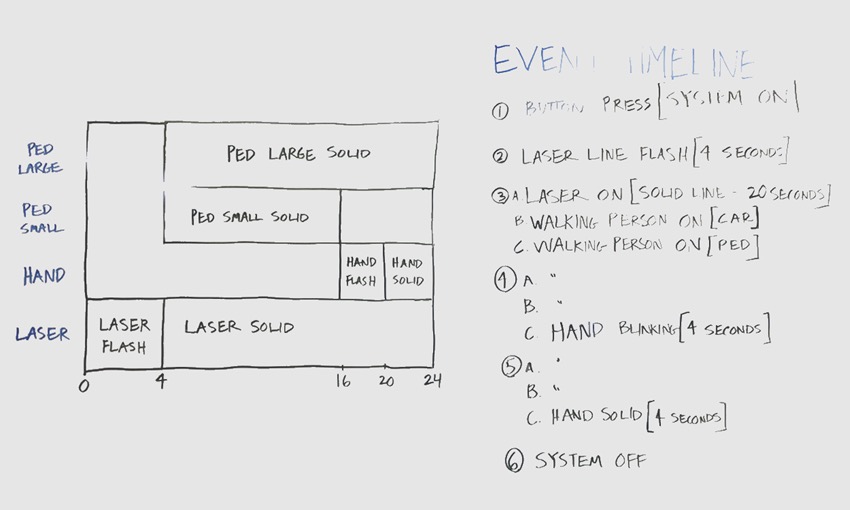 PED
LARGE
PED
SMALL
HAND
LASER
PED LARGE SOLID
PED SMALL SOLID
HAND
FLASH
HAND
SOLID
LASER
FLASH
LASER SOLID
0
4
16
20
24
EVENT TIMELINE
1 BUTTON PRESS [SYSTEM ON]
2 LASER LINE FLASH [4 SECONDS]
3 A LASER ON [SOLID LINE - 20 SECONDS]
B. WALKING PERSON ON [CAR]
C. WALKING PERSON ON [PED]
4 A. "
B. "
C. HAND BLINKING [4 SECONDS]
5 A. "
B. "
C. HAND SOLID [4 SECONDS]
6 SYSTEM OFF